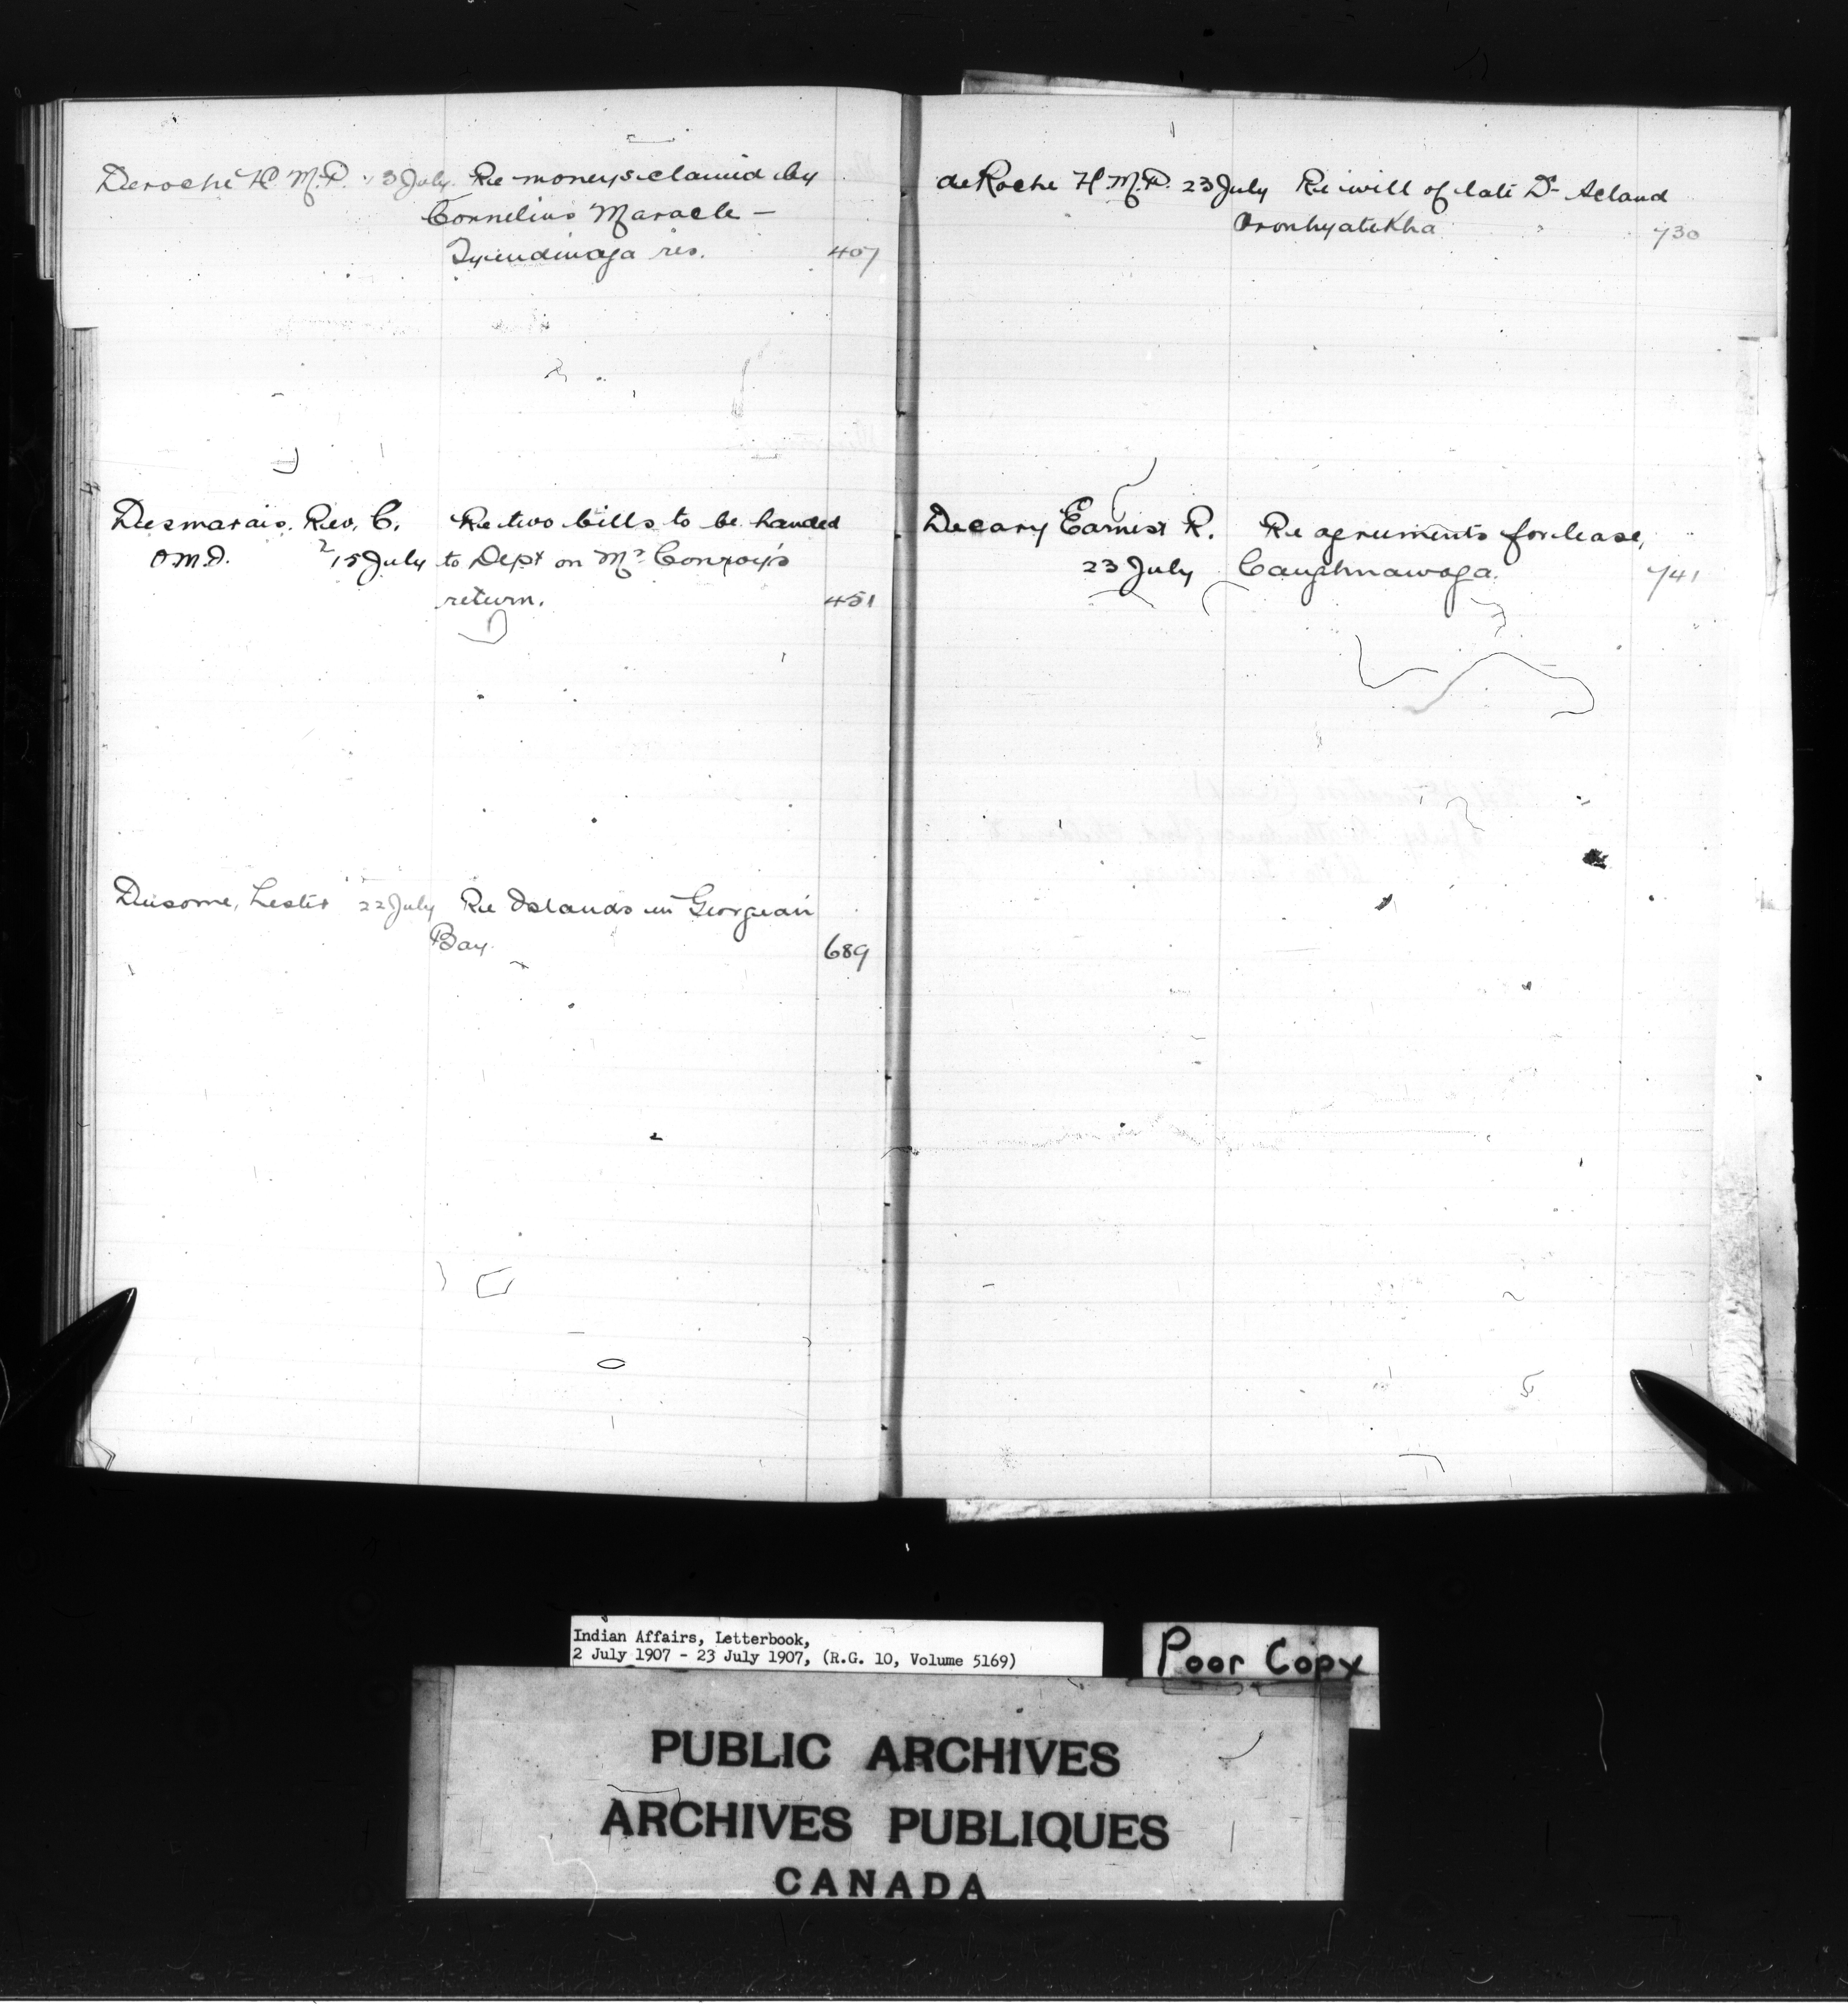 Deroche H. M.P. 13 July. Re moneys claimed by
Cornelius Maracle –
Tyendinaga res. 407
Desmarais, Rev. C. Re two bills to be handed
O.M.I. 15 July to Dept on Mr Conroy's
return. 451
Dusome, Lester 22 July Re Islands in Georgian
Bay. 689
deRoche H. M.P. 23 July Re will of late Dr Acland
Oronhyatekha 730
Decary Earnest R. Re agreements for lease,
23 July Caughnawaga. 741
Indian Affairs, Letterbook,
2 July 1907 - 23 July 1907, (R.G. 10, Volume 5169)
Poor Copy
PUBLIC ARCHIVES
ARCHIVES PUBLIQUES
CANADA